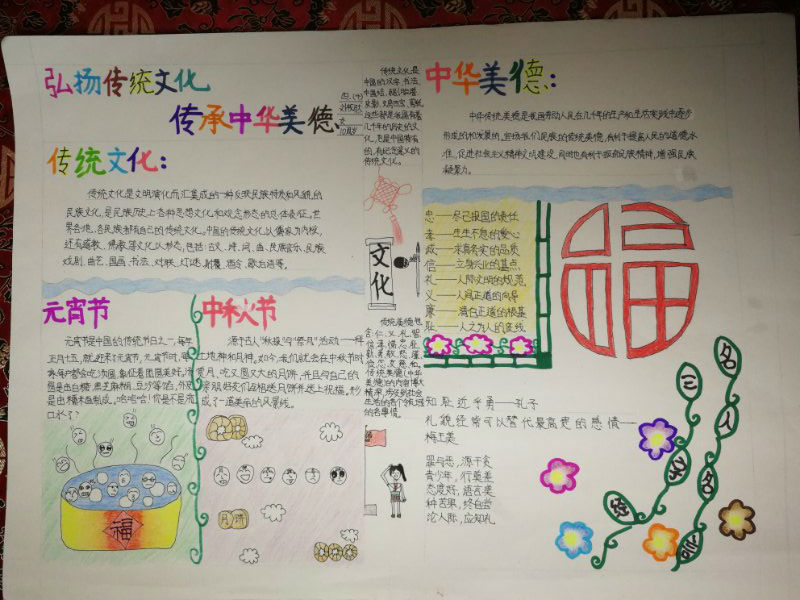 弘扬传统文化
传承中华美德
四、(十)
女
10周岁
传统文化：
传统文化是文明演化而汇集成的一种反映民族特质和风貌的
民族文化，是民族历史上各种思想文化和观念形态的总体表征。世
界各地，各民族都有自己的传统文化。中国的传统文化以儒家为内核，
还有道教、佛教等文化形态，包括：古文、诗、词、曲、民族音乐、民族
戏剧、曲艺、国画、书法、对联、灯谜、射覆、酒令、歇后语等。
元宵节
元宵节是中国的传统节日之一，每年
正月十五，就迎来了元宵节，元宵节时，每
家每户都会吃汤圆，象征着团圆美好，汤
圆是由白糖、黑芝麻糊、豆沙等馅，外皮
是由糯米面制成。哈哈哈！你是不是流
口水了？
中秋火节
源于古人"秋报"与"祭月"活动——拜
土地神和月神。如今，人们就会在中秋节时
赏月、吃又圆又大的月饼，并且与自己的
亲朋好友们互相送月饼并送上祝福，形
成了一道美丽的风景线。
福
月饼
传统文化是
中国的汉字、书法、
民族的历史的文
化，它是中国独有
的，有纪念意义的
传统文化。
文化
传统美德包
含：仁、义、礼、智、
信、孝、悌、忠、
传统美德《中华
美德》的内容博大
精深，涉及到社会
生活的各个领域
的各事情。
中华美德：
中华传统美德是我国劳动人民在几千年的生产和生活实践中逐步
形成的和发展的，弘扬我们民族的传统美德，有利于提高人民的道德水
准，促进社会主义精神文明建设，同时也有利于振奋民族精神，增强民族
凝聚力。
忠——尽己报国的责任
孝——生生不息的爱心
诚——求真务实的品质
信——立身兴业的基点
礼——人际文明的规范
义——人间正道的向导
廉——清白正道的根基
耻——人之为人的底线
福
知耻近乎勇——孔子
礼貌经常可以替代最高贵的感情——
梅里美
罪与恶，源于贪
青少年，行莫差
态度好，语言美
种苦果，终自尝
论人际，应知礼
名人名言
三字经